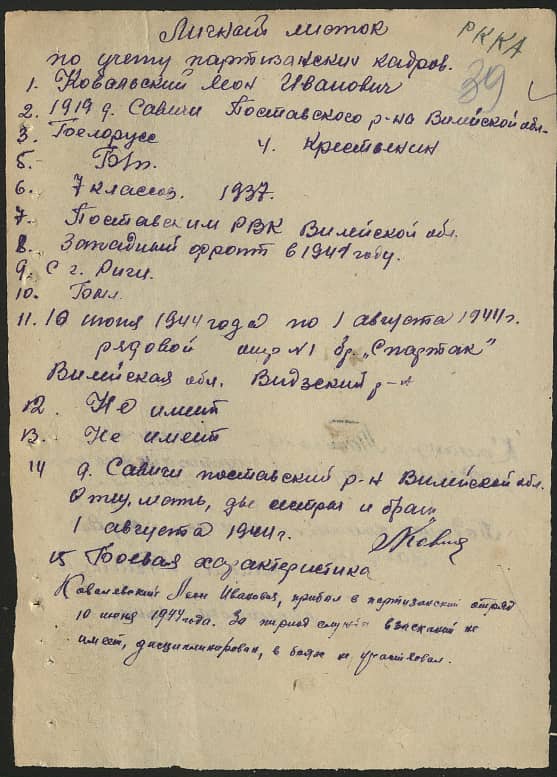 РККА
39
Личный листок
по учету партизанских кадров.
1. Ковальский Леон Иванович
2. 1919 д. Савичи Поставского р-на Вилейской обл.
3. Белорусс 4. Крестьянин
5. Б/п.
6. 7 классов. 1937.
7. Поставским РВК Вилейской обл.
8. Западный фронт в 1941 году.
9. С г. Риги.
10. Был
11. 10 июня 1944 года по 1 августа 1944 г.
рядовой отр №1 бр. „Спартак"
Вилейская обл. Видзский р-н
12. Не имеит
13. Не имеит
14 д. Савичи поставский р-н Вилейской обл.
Отец, мать, две сестры и брат
1 августа 1944 г.
15 Боевая характеристика
Ковалевский Леон Иванович, прибыл в партизанский отряд
10 июня 1944 года. За период службы взысканий не
имеет, дисциплинирован, в боях не участвовал.